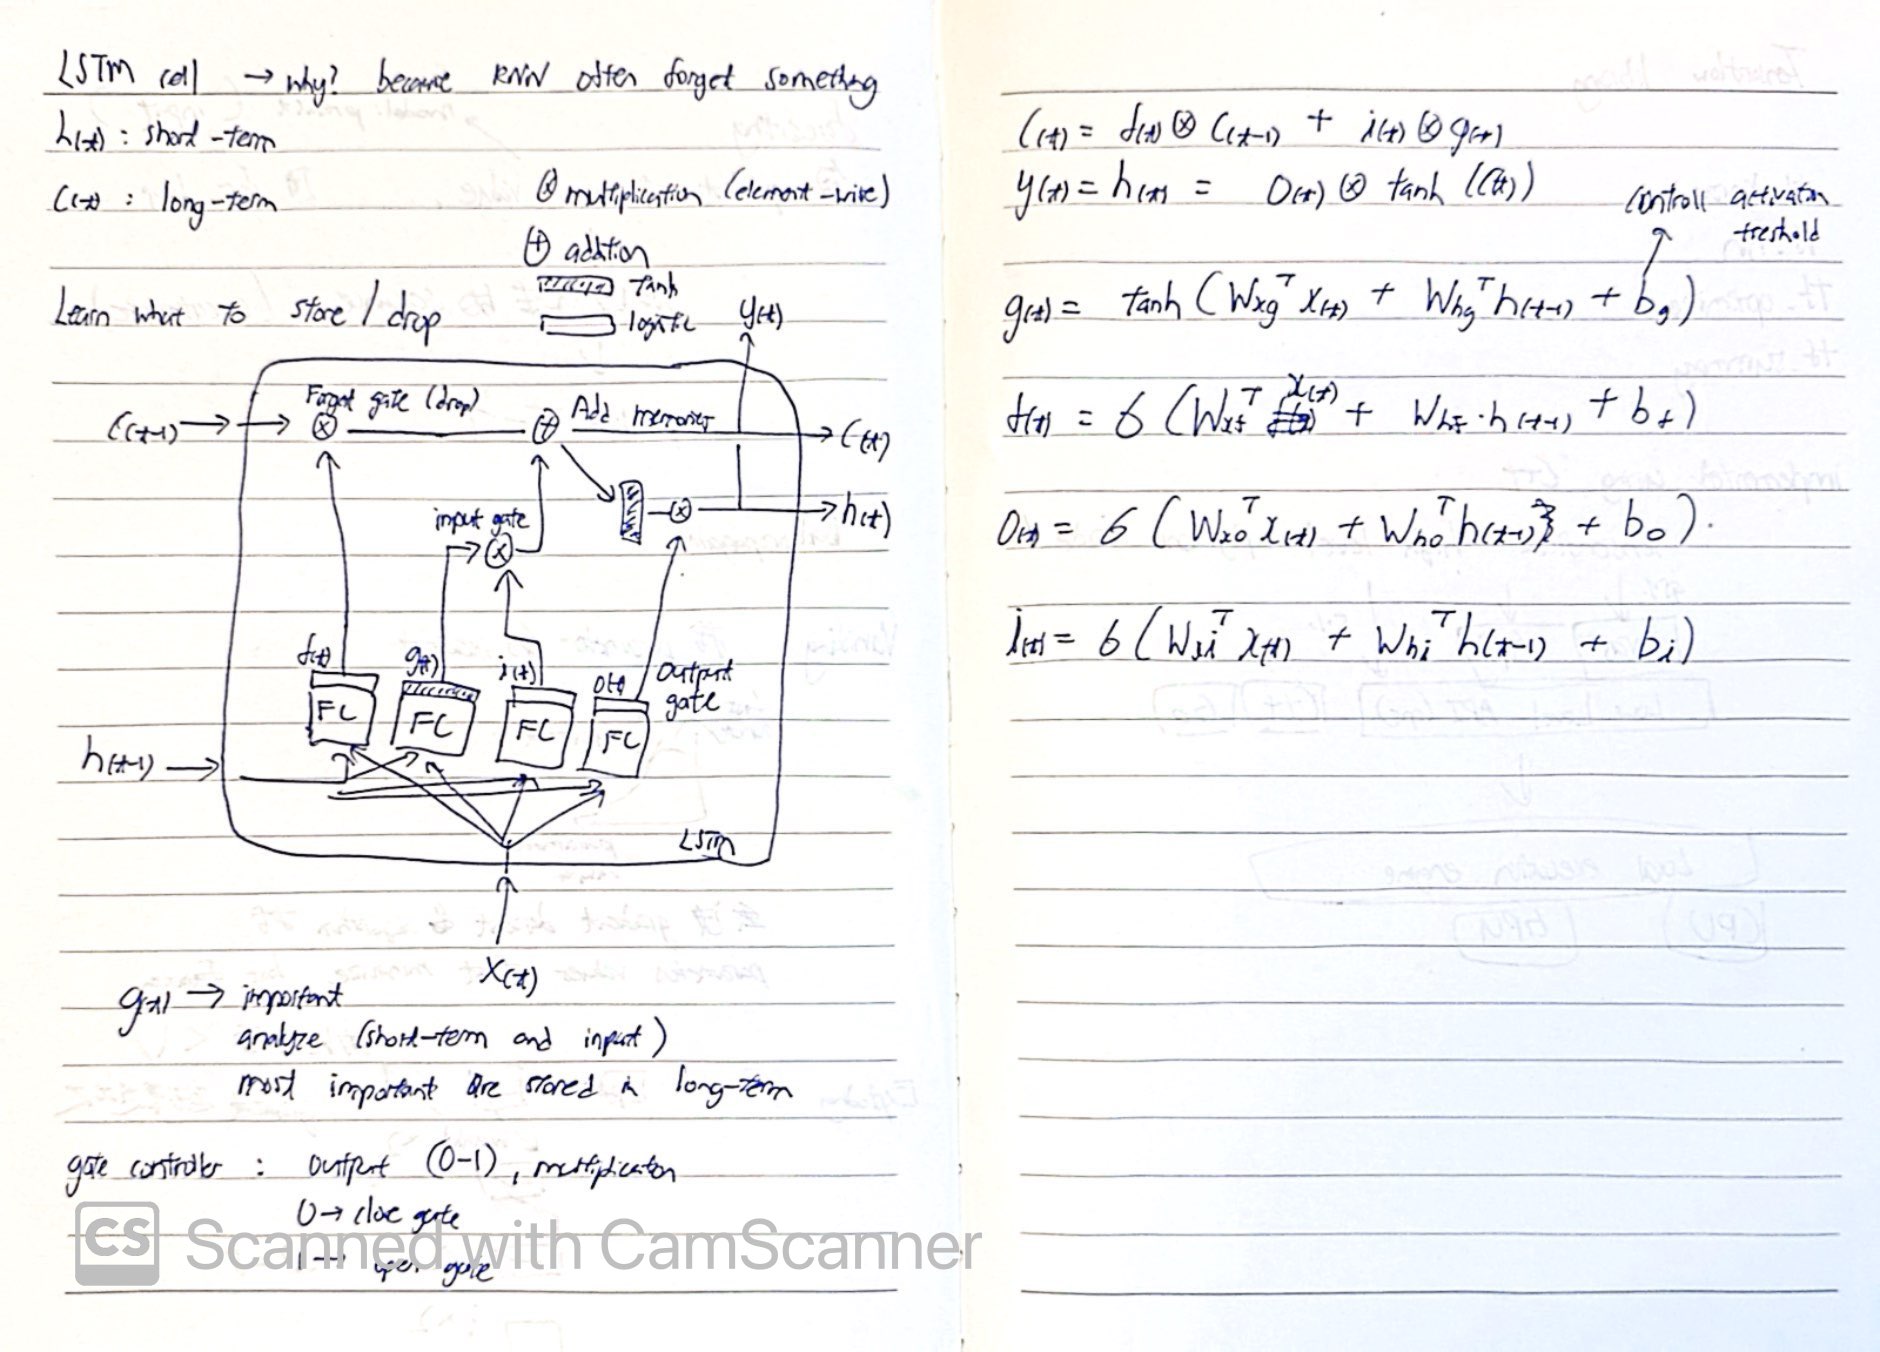 LSTM cell → why? because RNN often forget something
h(t) : short-term
C(t) : long-term
⊗ multiplication (element-wise)
⊕ addition
tanh
logistic
Learn what to store / drop
y(t)
Forget gate (drop)
Add memories
C(t-1)
C(t)
input gate
h(t)
f(t)
g(t)
i(t)
o(t)
Output gate
FC FC FC FC
h(t-1)
LSTM
X(t)
g(t) → important
analyze (short-term and input)
most important are stored in long-term
gate controller : output (0-1), multiplication
0 → close gate
1 → open gate
CS Scanned with CamScanner
C(t) = f(t) ⊗ C(t-1) + i(t) ⊗ g(t)
y(t) = h(t) = O(t) ⊗ tanh (C(t))
controll activation
treshold
g(t) = tanh (Wxg^T X(t) + Whg^T h(t-1) + bg)
f(t) = 6 (Wxf^T x(t) + Whf · h(t-1) + bf)
O(t) = 6 (Wxo^T x(t) + Who^T h(t-1) + bo).
i(t) = 6 (Wxi^T x(t) + Whi^T h(t-1) + bi)